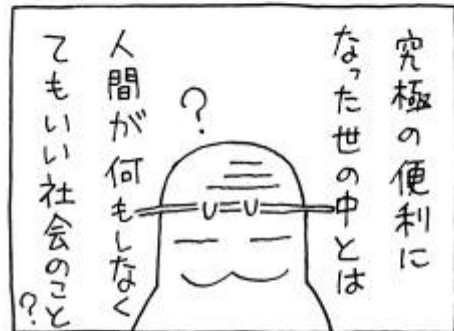 究極の便利に
なった世の中とは
?
人間が何もしなく
てもいい社会のこと?